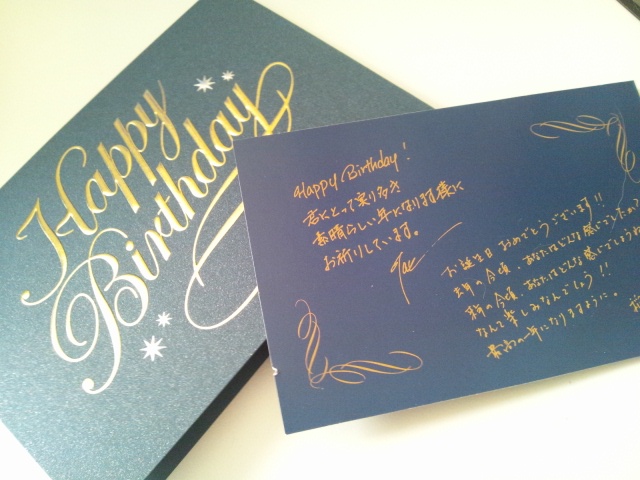 Happy
Birthday
Happy Birthday!
君にとって実り多き
素晴らしい年になります様に
お祈りしています。
Tae
お誕生日おめでとうございます!!
去年の今頃、あなたはどんな感じでしたって
来年の今頃、あなたはどんな感じでしょうね
なんて楽しみなんでしょう!!
最高の一年になりますように。